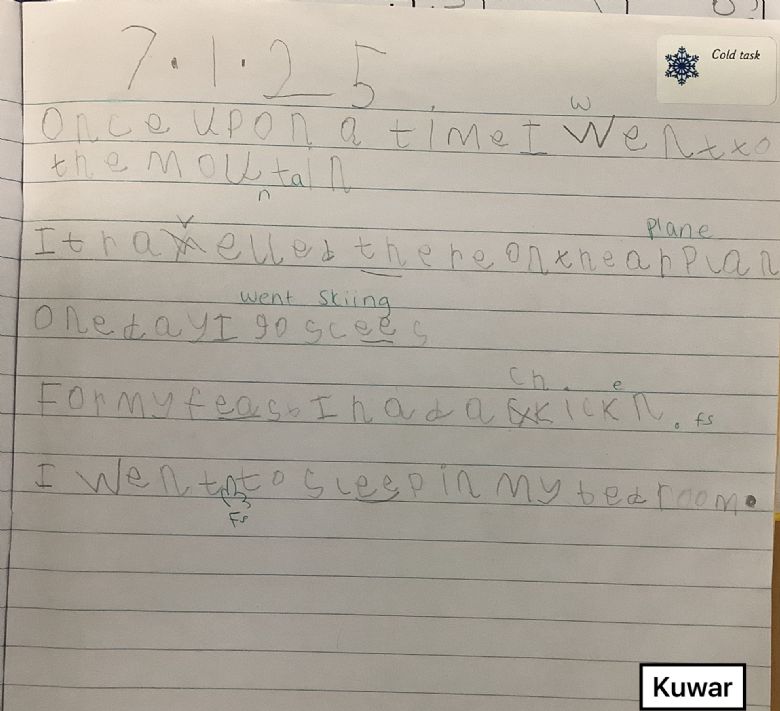 7.1.25
Cold task
w
Once upon a time I went to
the moutain
n
v
plane
I travelled there on the airplan
went skiing
One day I go scees
ch e
For my feas I had a kickn.
fs
I went to sleep in my bedroom.
Fs
Kuwar